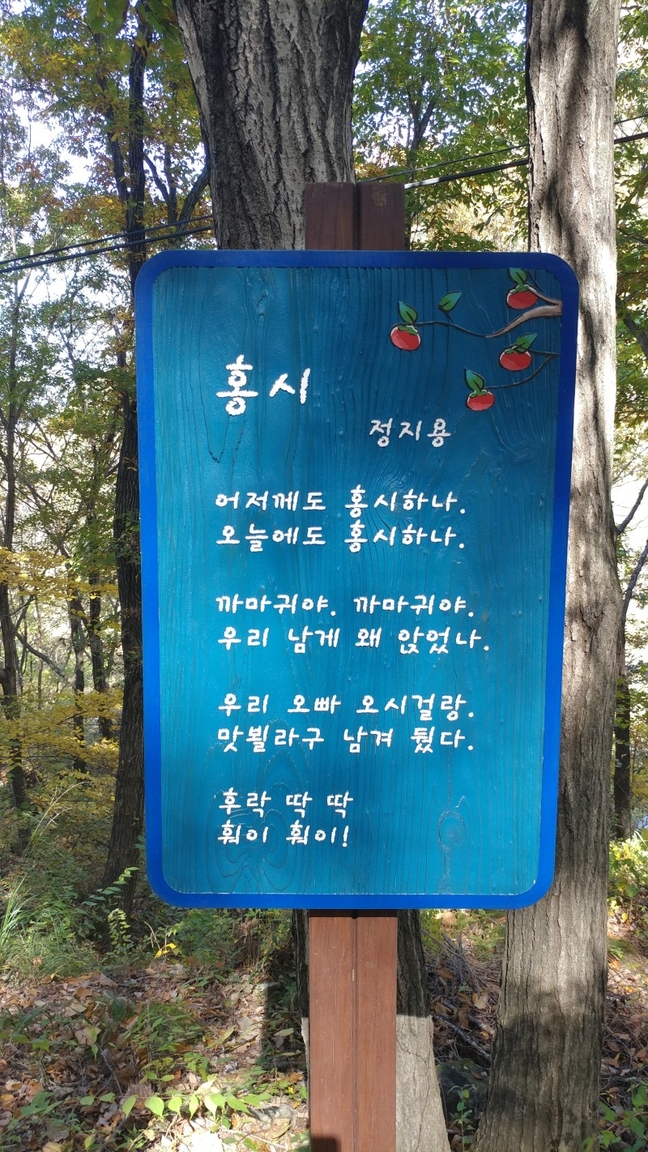 홍시
정지용
어저께도 홍시하나.
오늘에도 홍시하나.
까마귀야. 까마귀야.
우리 남게 왜 앉었나.
우리 오빠 오시걸랑.
맛뵐라구 남겨 뒀다.
후락 딱 딱
훠이 훠이!